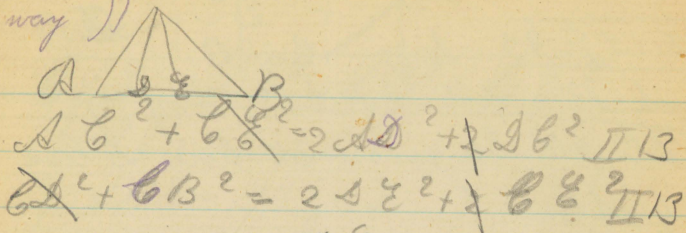 way ))
A D E B
AC² + CE² = 2AD² + 2DC² II 13
CD² + CB² = 2DE² + 2CE² II 13